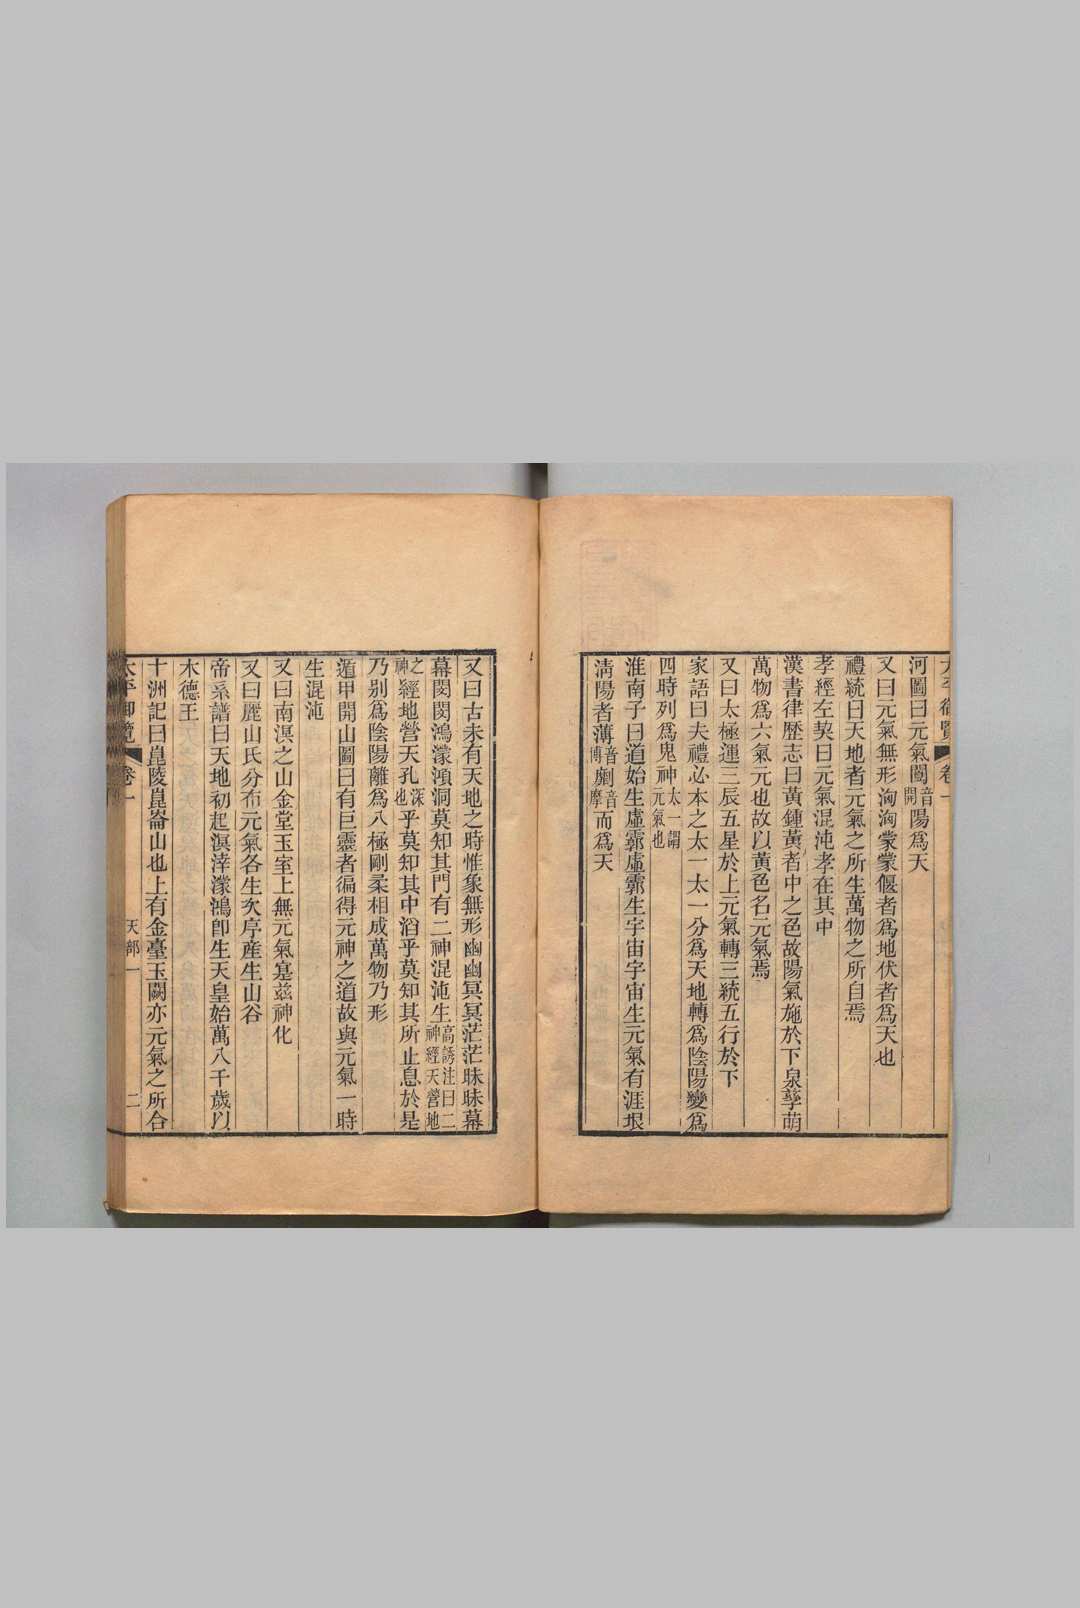 河圖曰元氣闓音開陽爲天
又曰元氣無形洶洶蒙蒙偃者爲地伏者爲天也
禮統曰天地者元氣之所生萬物之所自焉
孝經左契曰元氣混沌孝在其中
漢書律歷志曰黃鍾黃者中之色故陽氣施於下泉孳萌
萬物爲六氣元也故以黃色名元氣焉
又曰太極運三辰五星於上元氣轉三統五行於下
家語曰夫禮必本之太一太一分爲天地轉爲陰陽變爲
四時列爲鬼神太一謂元氣也
淮南子曰道始生虛霩虛霩生宇宙宇宙生元氣有涯垠
清陽者薄音博劘音摩而爲天
又曰古未有天地之時惟象無形幽幽冥冥茫茫昧昧幕
幕閔閔鴻濛澒洞莫知其門有二神混沌生高誘注曰二神經天營地
之神經地營天孔深也乎莫知其中滔乎莫知其所止息於是
乃别爲陰陽離爲八極剛柔相成萬物乃形
遁甲開山圖曰有巨靈者徧得元神之道故與元氣一時
生混沌
又曰南溟之山金堂玉室上無元氣寔茲神化
又曰麗山氏分布元氣各生次序產生山谷
帝系譜曰天地初起溟涬濛鴻卽生天皇始萬八千歲以
木德王
十洲記曰崑陵崑崙山也上有金臺玉闕亦元氣之所合
太平御覽 卷一 天部一 二